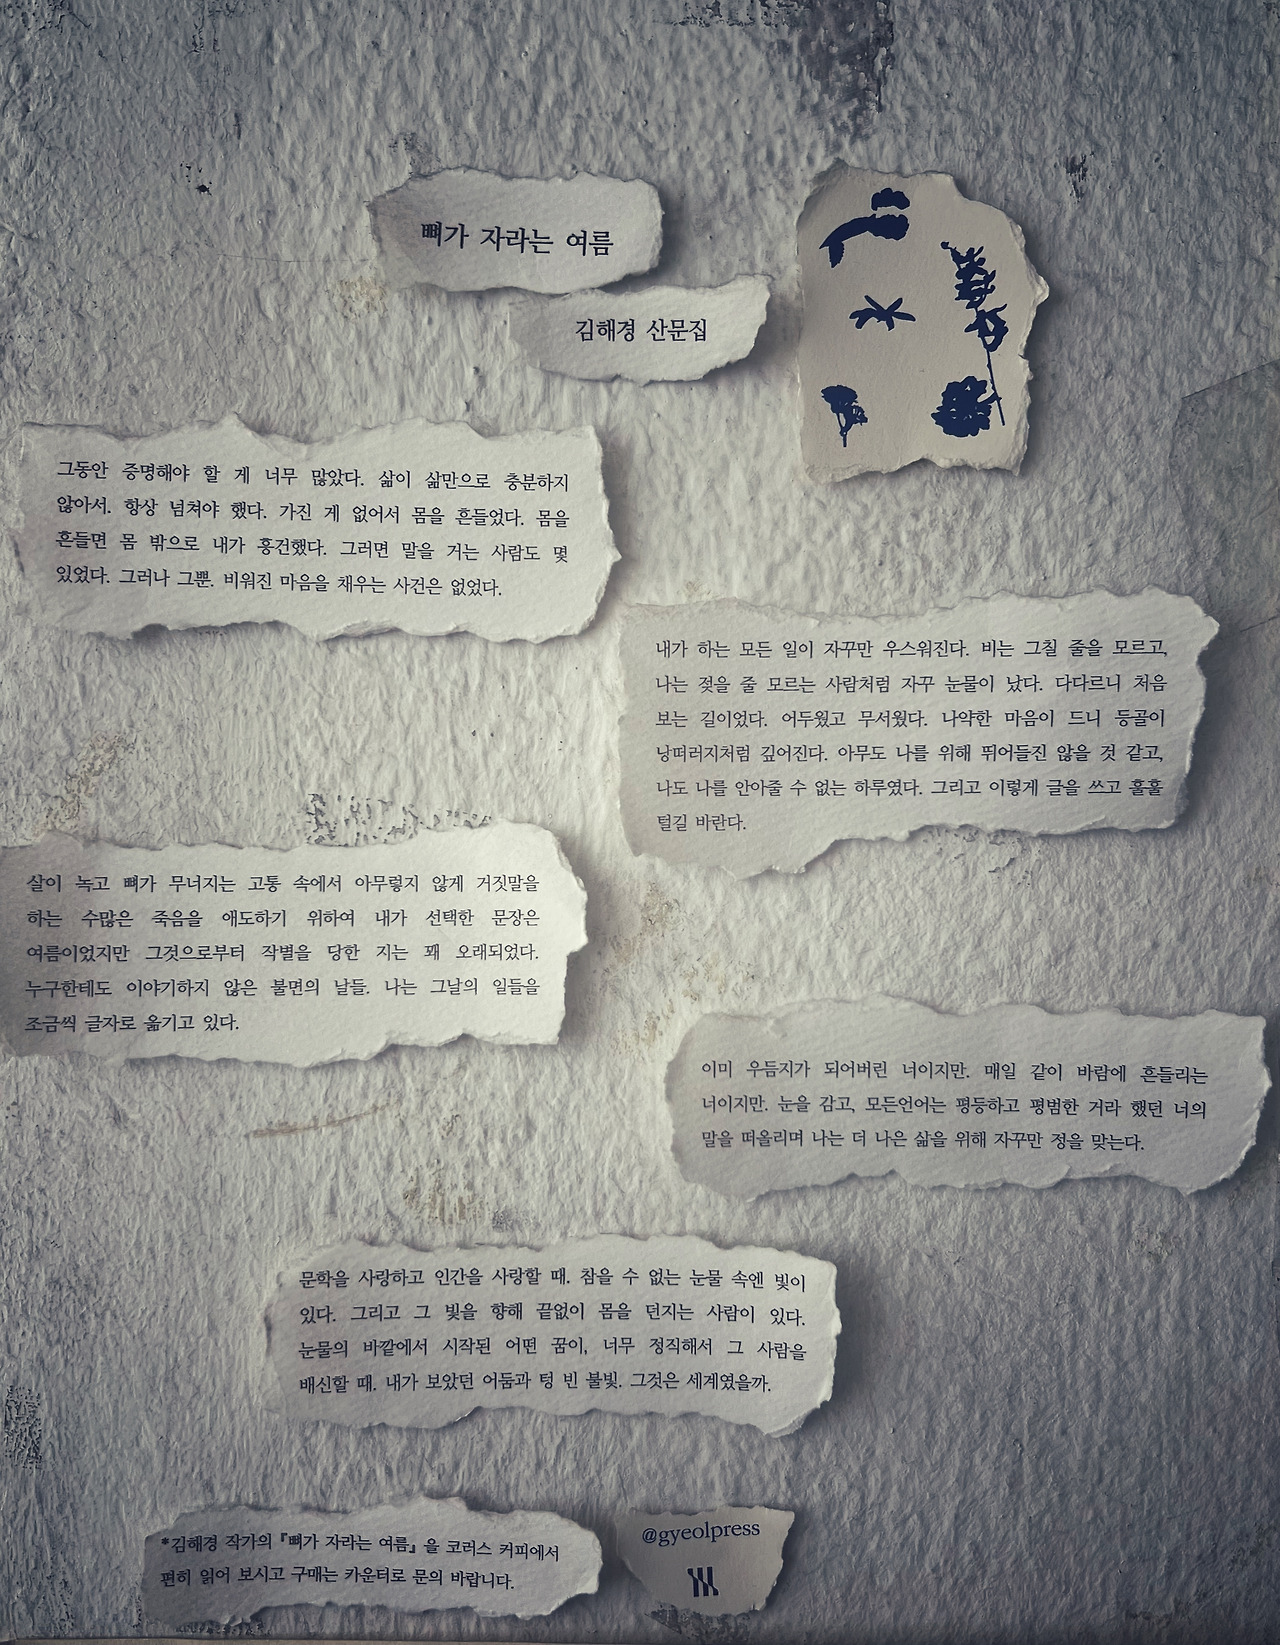 뼈가 자라는 여름
김해경 산문집
그동안 증명해야 할 게 너무 많았다. 삶이 삶만으로 충분하지
않아서. 항상 넘쳐야 했다. 가진 게 없어서 몸을 흔들었다. 몸을
흔들면 몸 밖으로 내가 흥건했다. 그러면 말을 거는 사람도 몇
있었다. 그러나 그뿐. 비워진 마음을 채우는 사건은 없었다.
내가 하는 모든 일이 자꾸만 우스워진다. 비는 그칠 줄을 모르고,
나는 젖을 줄 모르는 사람처럼 자꾸 눈물이 났다. 다다르니 처음
보는 길이었다. 어두웠고 무서웠다. 나약한 마음이 드니 등골이
낭떠러지처럼 깊어진다. 아무도 나를 위해 뛰어들진 않을 것 같고,
나도 나를 안아줄 수 없는 하루였다. 그리고 이렇게 글을 쓰고 훌훌
털길 바란다.
살이 녹고 뼈가 무너지는 고통 속에서 아무렇지 않게 거짓말을
하는 수많은 죽음을 애도하기 위하여 내가 선택한 문장은
여름이었지만 그것으로부터 작별을 당한 지는 꽤 오래되었다.
누구한테도 이야기하지 않은 불면의 날들. 나는 그날의 일들을
조금씩 글자로 옮기고 있다.
이미 우듬지가 되어버린 너이지만. 매일 같이 바람에 흔들리는
너이지만. 눈을 감고, 모든언어는 평등하고 평범한 거라 했던 너의
말을 떠올리며 나는 더 나은 삶을 위해 자꾸만 정을 맞는다.
문학을 사랑하고 인간을 사랑할 때. 참을 수 없는 눈물 속엔 빛이
있다. 그리고 그 빛을 향해 끝없이 몸을 던지는 사람이 있다.
눈물의 바깥에서 시작된 어떤 꿈이, 너무 정직해서 그 사람을
배신할 때. 내가 보았던 어둠과 텅 빈 불빛. 그것은 세계였을까.
*김해경 작가의 『뼈가 자라는 여름』을 코러스 커피에서
편히 읽어 보시고 구매는 카운터로 문의 바랍니다.
@gyeolpress